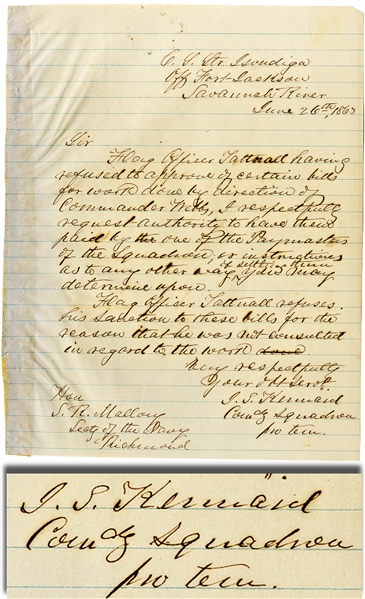 C. S. Str. Isondiga
Off Fort Jackson
Savannah River
June 26th, 1863
Sir
Flag Officer Tattnall having
refused to approve of certain bills
for work done by direction of
Commander Webb, I respectfully
request authority to have them
paid by one of the Paymasters
of the Squadron, or instructions
as to any other way you may
determine upon.
Flag Officer Tattnall refuses
his sanction to these bills for the
reason that he was not consulted
in regard to the work done
Very respectfully
Your obt Servt.
J. S. Kennard
Comdg Squadron
pro tem.
Hon
S. R. Mallory
Secty of the Navy
Richmond
J. S. Kennard
Comdg Squadron
pro tem.